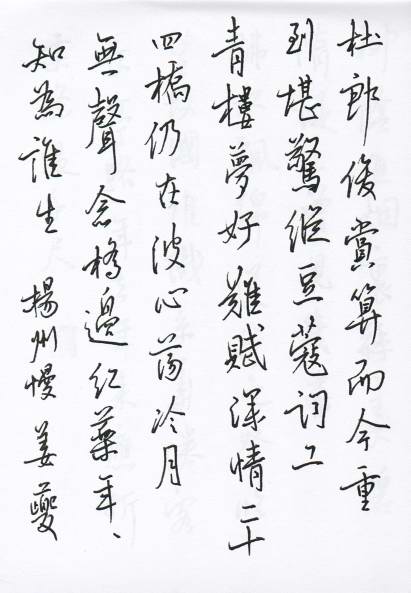 杜郎俊賞算而今重
到堪驚縱豆蔻詞工
青樓夢好難賦深情二十
四橋仍在波心蕩冷月
無聲念橋邊紅藥年、
知為誰生 楊州慢 姜夔